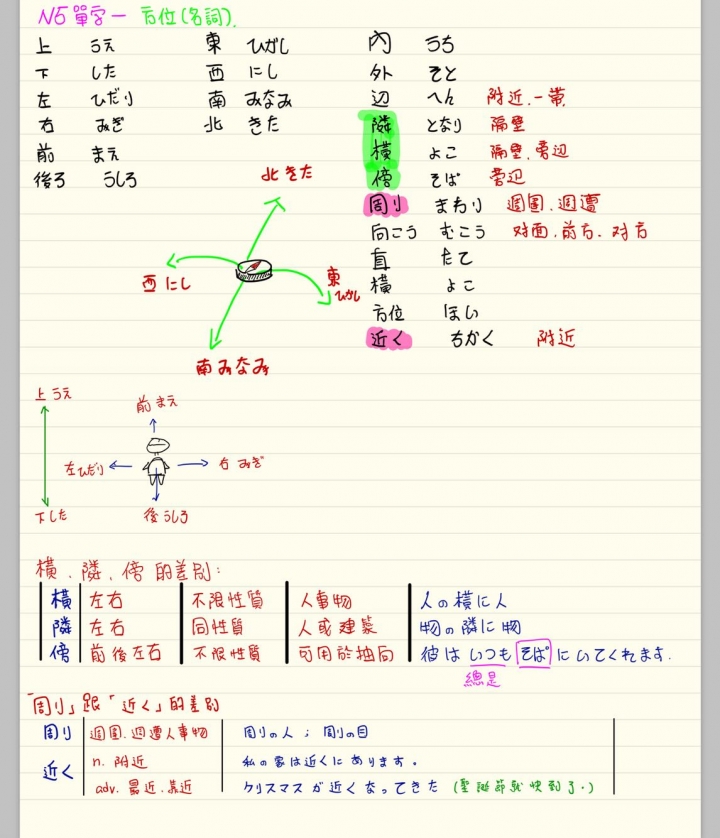 N5單字一 方位(名詞).
上 うえ
下 した
左 ひだり
右 みぎ
前 まえ
後ろ うしろ
東 ひがし
西 にし
南 みなみ
北 きた
內 うち
外 そと
辺 へん 附近.一帶
隣 となり 隔壁
横 よこ 隔壁.旁辺
傍 そば 旁辺
周り まわり 週圍.週遭
向こう むこう 対面.前方.対方
直 たて
橫 よこ
方位 ほい
近く ちかく 附近
北 きた
西 にし
東 ひがし
南 みなみ
上 うえ
下 した
前 まえ
左 ひだり
右 みぎ
後 うしろ
橫、隣、傍 的差別:
橫 左右 不限性質 人事物 人の橫に人
隣 左右 同性質 人或建築 物の隣に物
傍 前後左右 不限性質 可用於抽向 彼は いつも そば にいてくれます.
總是
「周り」跟「近く」的差別
周り 週圍.週遭人事物 周りの人 ; 周りの目
近く n. 附近 私の家は近くにあります.
adv. 最近.靠近 クリスマスが近くなってきた (聖誕節就快到了.)